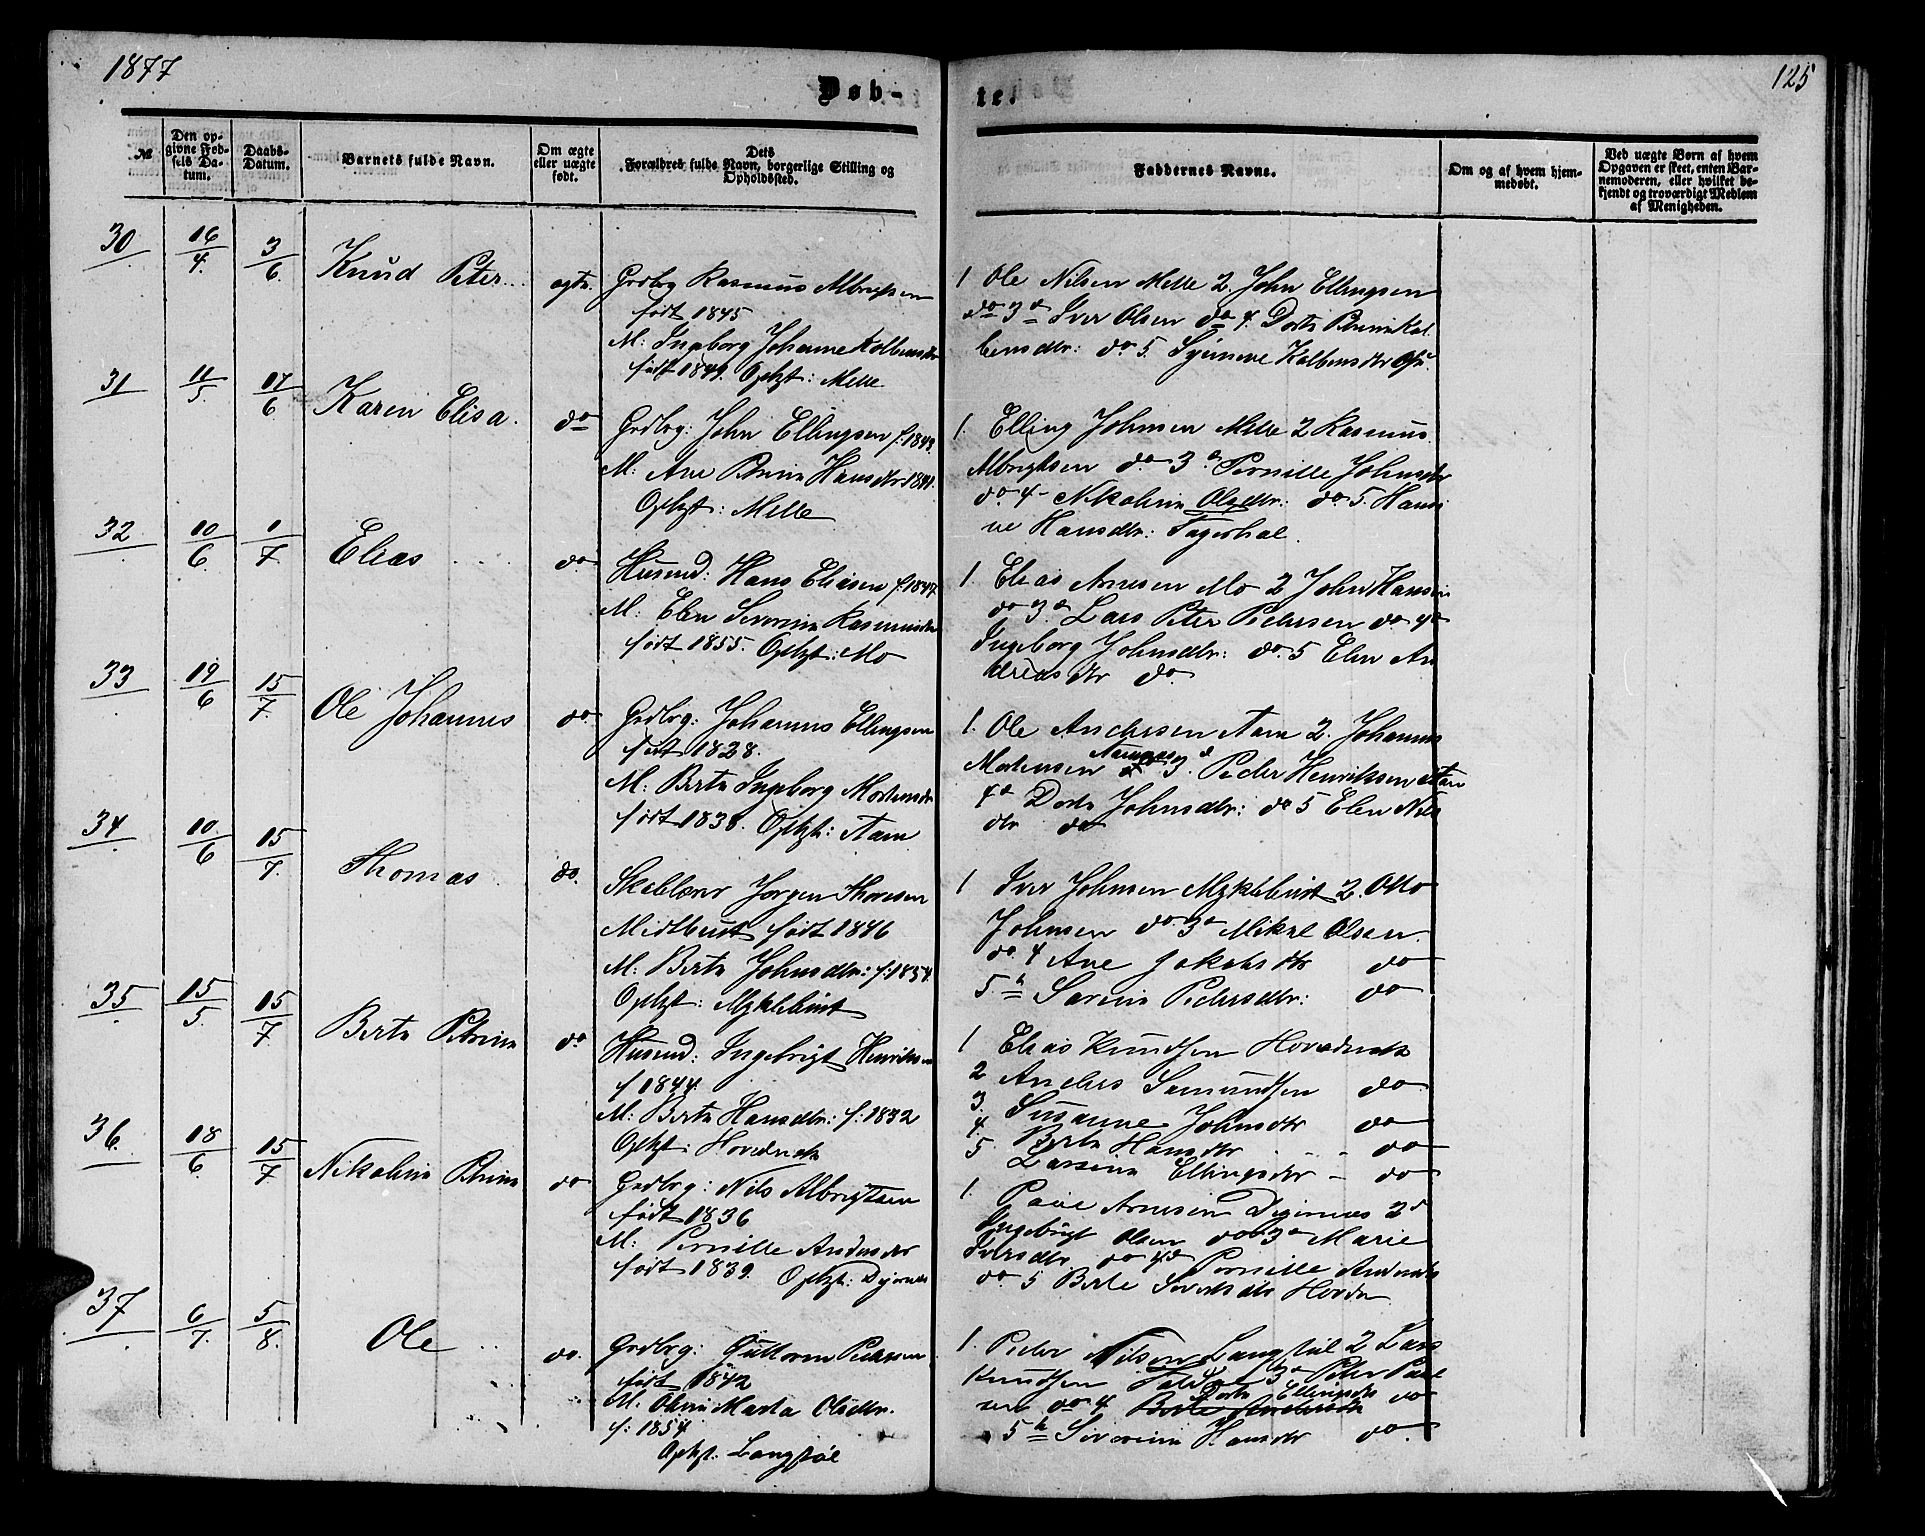 1877
125
Døb-
te.
№
Den op-
givne Fød-
sels Da-
tum.
Daabs-
Datum.
Barnets fulde Navn.
Om ægte
eller uægte
født.
Dets
Forældres fulde Navn, borgerlige Stilling og
Opholdssted.
Faddernes Navne.
Om og af hvem hjem-
medøbt.
Ved uægte Børn af hvem
Opgaven er skeet, enten Bar-
nemoderen, eller hvilket be-
kjendt og troværdigt Medlem
af Menigheden.
30 16/4. 3/6. Knud Peter ægte. Grdbrg Rasmus Albrigtsen
født 1845
M: Ingeborg Johanne Kolbensdtr
født 1849. Oplzt: Melle
1 Ole Nilsen Melle 2. John Ellingsen
do 3. Iver Olsen do 4. Dorte
bensdtr: do 5.
31 11/5. 17/6 Karen Elisa. do Grdbrg: John Ellingsen
M: Ane Hansdtr
Oplzt: Melle
1. Elling Johnsen Melle 2 Rasmus
Albrigtsen do 3 Pernille Johnsdtr
do 4 Nikoline Olsdtr: do 5. Hansi
ne Hansdtr: Fagerhol.
32 10/6. /7 Elias do Husmd: Hans Eliasen f: 1847.
M: Elen Severine Rasmusdtr
født 1855. Oplzt: Mo
1. Elias Arnesen Mo 2 John Hansen
do 3. Lars Peter Pedersen do 4
Ingeborg Johnsdtr: do. 5 Elen An
dreasdtr do.
33 19/6 15/7. Ole Johannes do Grdbrg: Johannes Ellingsen
født 1828.
M: Berte Ingeborg Mortensdtr
født 1838. Oplzt: Aam
1. Ole Andersen Aam 2. Johannes
Mortensen 3. Peder Henriksen Aam
4 Dorte Johnsdtr: do 5 Elen Nils
dtr do
34 10/6 15/7. Thomas do. Skolelærer Jørgen Thoresen
Midtbust født 1846
M: Berte Johnsdtr: f: 1854.
Oplzt: Myklebust
1 Iver Johnsen Myklebust 2. Otto
Johnsen do. 3 Mikal Olsen.
do. 4 Ane Jakobsdtr do
5. Pedersdtr: do
35 15/5. 15/7. Berte Petrine do Husmd: Ingebrigt Henriksen
f 1844.
M: Berte Hansdtr: f: 1832
Oplzt:
1 Elias Knudsen
2 Anders Samundsen do
3. Susanne Johnsdtr do
4. Berte Hansdtr do
5. Larsine Ellingsdtr do
36. 18/6 15/7 Nikoline do Grdbrg: Nils Albrigtsen
født 1836
M: Pernille Andersdtr
født 1839. Oplzt:
1. Arnesen 2
Ingebrigt Olsen do 3 Marie
Iversdtr do 4 Pernille Andersdtr
do 5 Berte Hovde
37 6/7. 5/8. Ole do. Grdbrg: Guttorm Pedersen
født 1842
M. Oline Marta Olsdtr.
f: 1854
Oplzt: Langstøl
1. Peder Nilsen Langstøl 2 Lars
Knudsen 3 Peter Paul
sen do 4 Dorte Ellingsdtr do
5 Severine Hansdtr do.